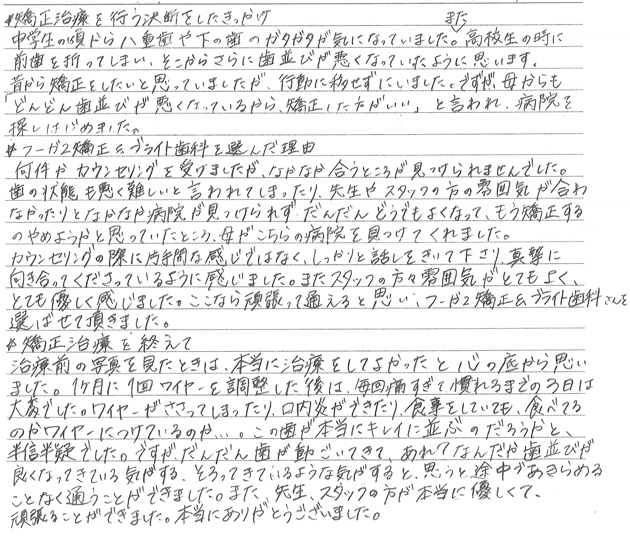 *矯正治療を行う決断をしたきっかけ
中学生の頃から八重歯や下の歯のガタガタが気になっていました。また高校生の時に
前歯を折ってしまい、そこからさらに歯並びが悪くなっていたように思います。
昔から矯正をしたいと思っていましたが、行動に移せずにいました。ですが、母からも
「どんどん歯並びが悪くなっているから、矯正した方がいい」と言われ、病院を
探しはじめました。
*フーガ2矯正&ブライト歯科を選んだ理由
何件かカウンセリングを受けましたが、なかなか合うところが見つけられませんでした。
歯の状態も悪く難しいと言われてしまったり、先生やスタッフの方の雰囲気が合わ
なかったりとなかなか病院が見つけられず、だんだんどうでもよくなって、もう矯正する
のやめようかと思っていたところ、母がこちらの病院を見つけてくれました。
カウンセリングの際に片手間な感じではなく、しっかりと話しをきいて下さり、真摯に
向き合ってくださっているように感じました。またスタッフの方々雰囲気がとてもよく、
とても優しく感じました。ここなら頑張って通えると思い、フーガ2矯正&ブライト歯科さんを
選ばせて頂きました。
*矯正治療を終えて
治療前の写真を見たときは、本当に治療をしてよかったと心の底から思い
ました。1ヶ月に1回ワイヤーを調整した後は、毎回痛すぎて慣れるまでの3日は
大変でした。ワイヤーがささってしまったり、口内炎ができたり、食事をしていても、食べてる
のかワイヤーにつけているのか…。この歯が本当にキレイに並ぶのだろうかと、
半信半疑でした。ですが、だんだん歯が動ごいてきて、あれ?なんだか歯並びが
良くなってきている気がする、そろってきているような気がすると、思うと途中であきらめる
ことなく通うことができました。また、先生、スタッフの方が本当に優しくて、
頑張ることができました。本当にありがとうございました。